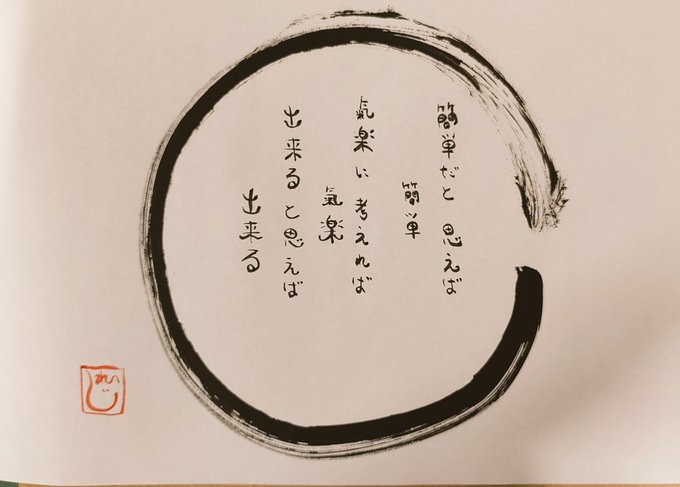 簡単だと思えば
簡単
氣楽に考えれば
氣楽
出来ると思えば
出来る
れいじ